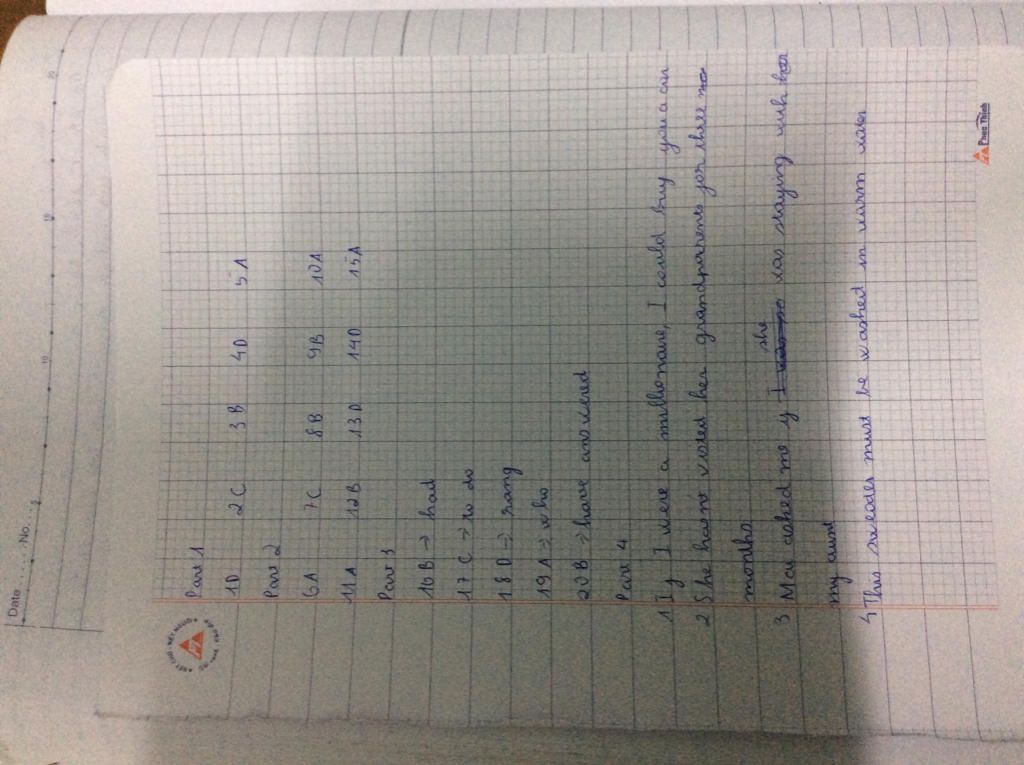 Date ..... No. ..
Part 1
1D 2C 3B 4D 5A
Part 2
6A 7C 8B 9B 10A
11A 12B 13D 14D 15A
Part 3
16B → had
17C → to do
18D → rang
19A → who
20B → have answered
Part 4
1 If I were a millionaire, I could buy you a car
2 She hasn't visited her grandparents for three
months
3 Mai asked me if I she was staying with her
my aunt
4 This sweater must be washed in warm water
Phuc Thinh